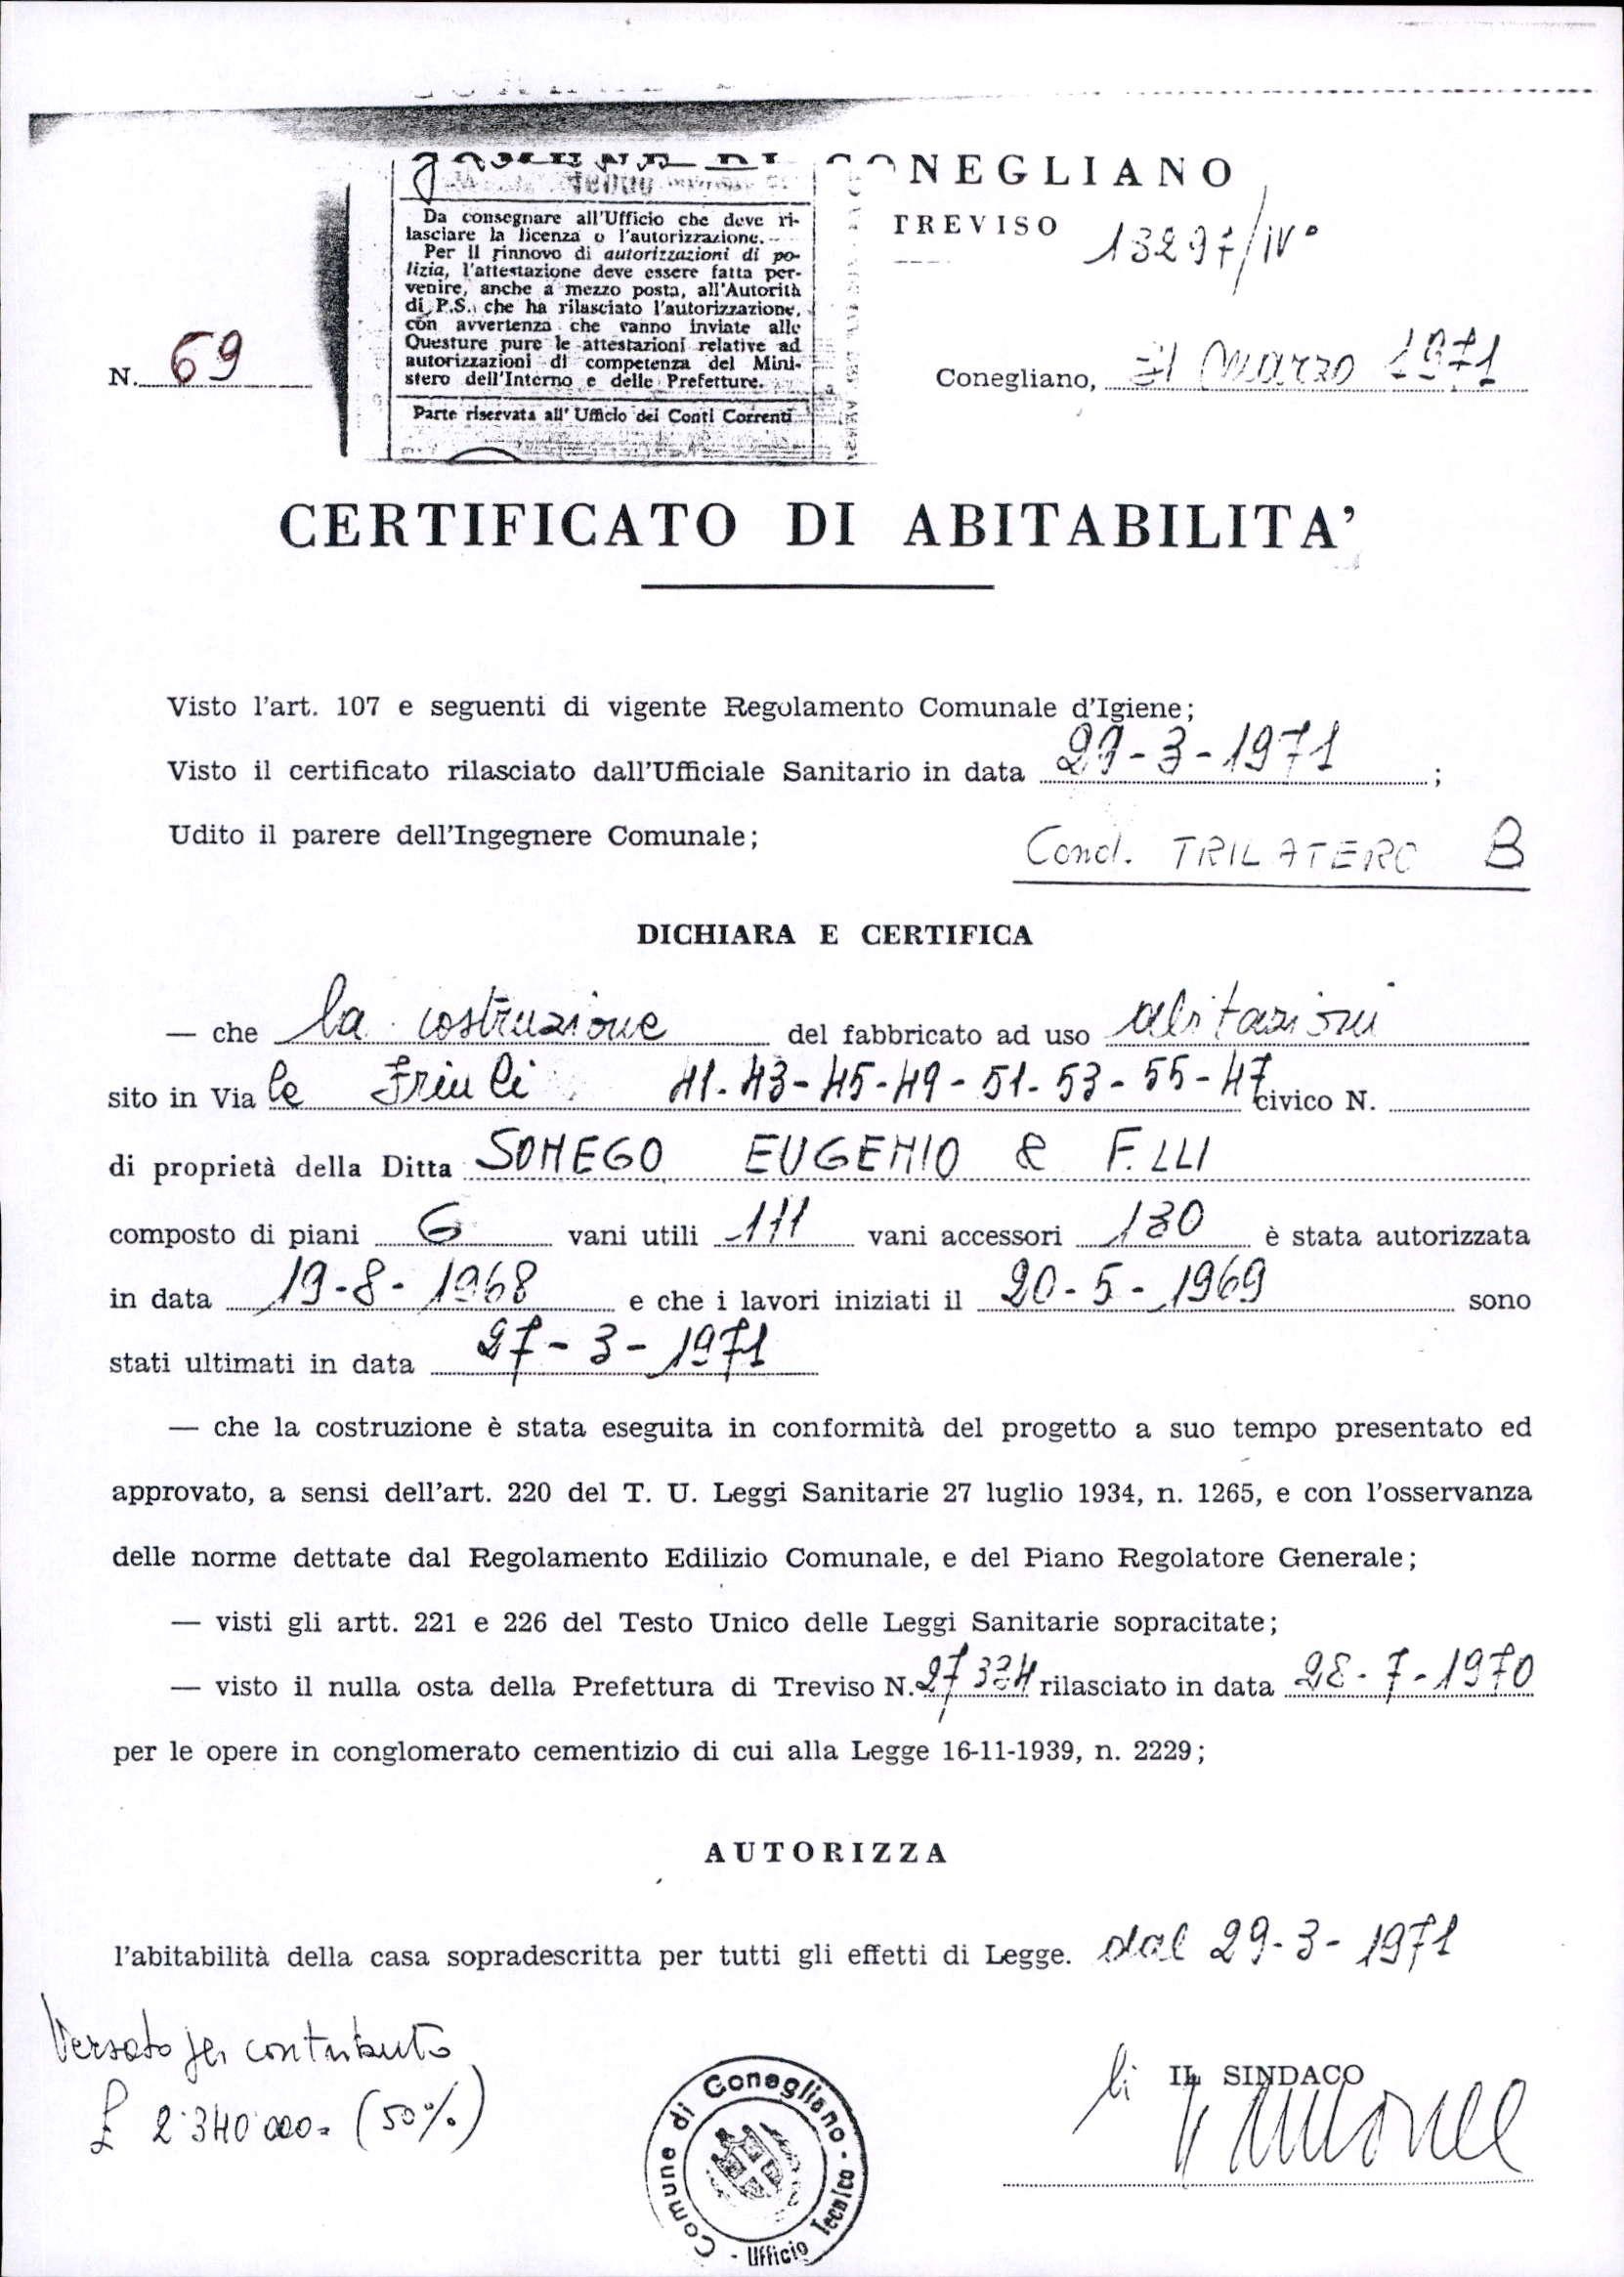 CONEGLIANO
TREVISO
13297/IV°
Da consegnare all'Ufficio che deve ri-
lasciare la licenza o l'autorizzazione.
Per il rinnovo di autorizzazioni di po-
lizia, l'attestazione deve essere fatta per-
venire, anche a mezzo posta, all'Autorità
di P.S. che ha rilasciato l'autorizzazione,
con avvertenza che vanno inviate alle
Questure pure le attestazioni relative ad
autorizzazioni di competenza del Mini-
stero dell'Interno e delle Prefetture.
Parte riservata all'Ufficio dei Conti Correnti
N. 69
Conegliano, 31 Marzo 1971
CERTIFICATO DI ABITABILITA'
Visto l'art. 107 e seguenti di vigente Regolamento Comunale d'Igiene;
Visto il certificato rilasciato dall'Ufficiale Sanitario in data 29-3-1971;
Udito il parere dell'Ingegnere Comunale;
Cond. TRILATERO B
DICHIARA E CERTIFICA
— che la costruzione del fabbricato ad uso abitazioni
sito in Via le Friuli 41-43-45-49-51-53-55-47 civico N.
di proprietà della Ditta SONEGO EUGENIO & F.LLI
composto di piani 6 vani utili 111 vani accessori 130 è stata autorizzata
in data 19-8-1968 e che i lavori iniziati il 20-5-1969 sono
stati ultimati in data 27-3-1971
— che la costruzione è stata eseguita in conformità del progetto a suo tempo presentato ed
approvato, a sensi dell'art. 220 del T. U. Leggi Sanitarie 27 luglio 1934, n. 1265, e con l'osservanza
delle norme dettate dal Regolamento Edilizio Comunale, e del Piano Regolatore Generale;
— visti gli artt. 221 e 226 del Testo Unico delle Leggi Sanitarie sopracitate;
— visto il nulla osta della Prefettura di Treviso N. 27334 rilasciato in data 28-7-1970
per le opere in conglomerato cementizio di cui alla Legge 16-11-1939, n. 2229;
AUTORIZZA
l'abitabilità della casa sopradescritta per tutti gli effetti di Legge. dal 29-3-1971
Versato per contributo
£ 2.340.000= (50%)
Comune di Conegliano - Ufficio Tecnico -
li IL SINDACO